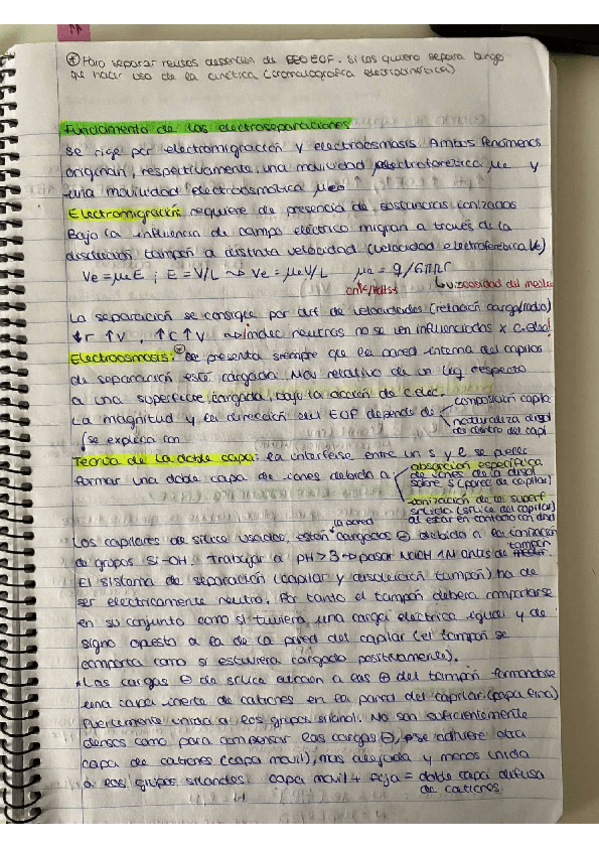 ⊛ Para separar neutros dependen de EEO EOF. Si los quiero separar tengo
que hacer uso de la cinética (cromatografía electrocinética)
Fundamento de las electroseparaciones
Se rige por electromigración y electroósmosis. Ambos fenómenos
originan, respectivamente, una movilidad electroforética μe y
una movilidad electroosmótica μeo
Electromigración requiere de presencia de sustancias ionizadas
Bajo la influencia de campo eléctrico migran a través de la
disolución tampón a distinta velocidad (velocidad electroforética Ve)
Ve = μe E ; E = V/L → Ve = μe V/L μe = q/6πηr
cm²/V·s
↳ viscosidad del medio
La separación se consigue por dif de velocidades (relación carga/radio)
↓r ↑V, ↑C ↑V → molec neutras no se ven influenciadas x C.elec!
Electroósmosis: Se presenta siempre que la pared interna del capilar
de separación esté cargada. Mov relativo de un líq. respecto
a una superficie cargada, bajo la acción de C elec.
La magnitud y la dirección del EOF depende de
composición capilar
naturaleza disol
dentro del capi
(se explica con
Teoría de la doble capa: la interfase entre un s y l se puede
formar una doble capa de iones debido a:
absorción específica
de iones de la disol
sobre S (pared de capilar)
ionización de la superf
sólida (sílice del capilar)
al estar en contacto con disol
la pared
Los capilares de sílice usados, están cargados ⊖ debido a la ionización
de grupos Si-OH. Trabajar a pH>3 → pasar NaOH 1M antes de
tampón
El sistema de separación (capilar y disolución tampón) ha de
ser eléctricamente neutro. Por tanto el tampón deberá comportarse
en su conjunto como si tuviera una carga eléctrica igual y de
signo opuesto a la de la pared del capilar (el tampón se
comporta como si estuviera cargado positivamente).
* Las cargas ⊖ de sílice atraen a las ⊕ del tampón formándose
una capa inerte de cationes en la pared del capilar (capa fija)
fuertemente unida a los grupos silanol. No son suficientemente
densos como para compensar las cargas ⊖, se adhiere otra
capa de cationes (capa móvil), más alejada y menos unida
a los grupos silanoles. capa móvil + fija = doble capa difusa
de cationes.